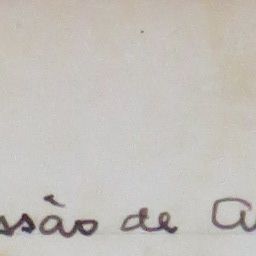 ssão de a